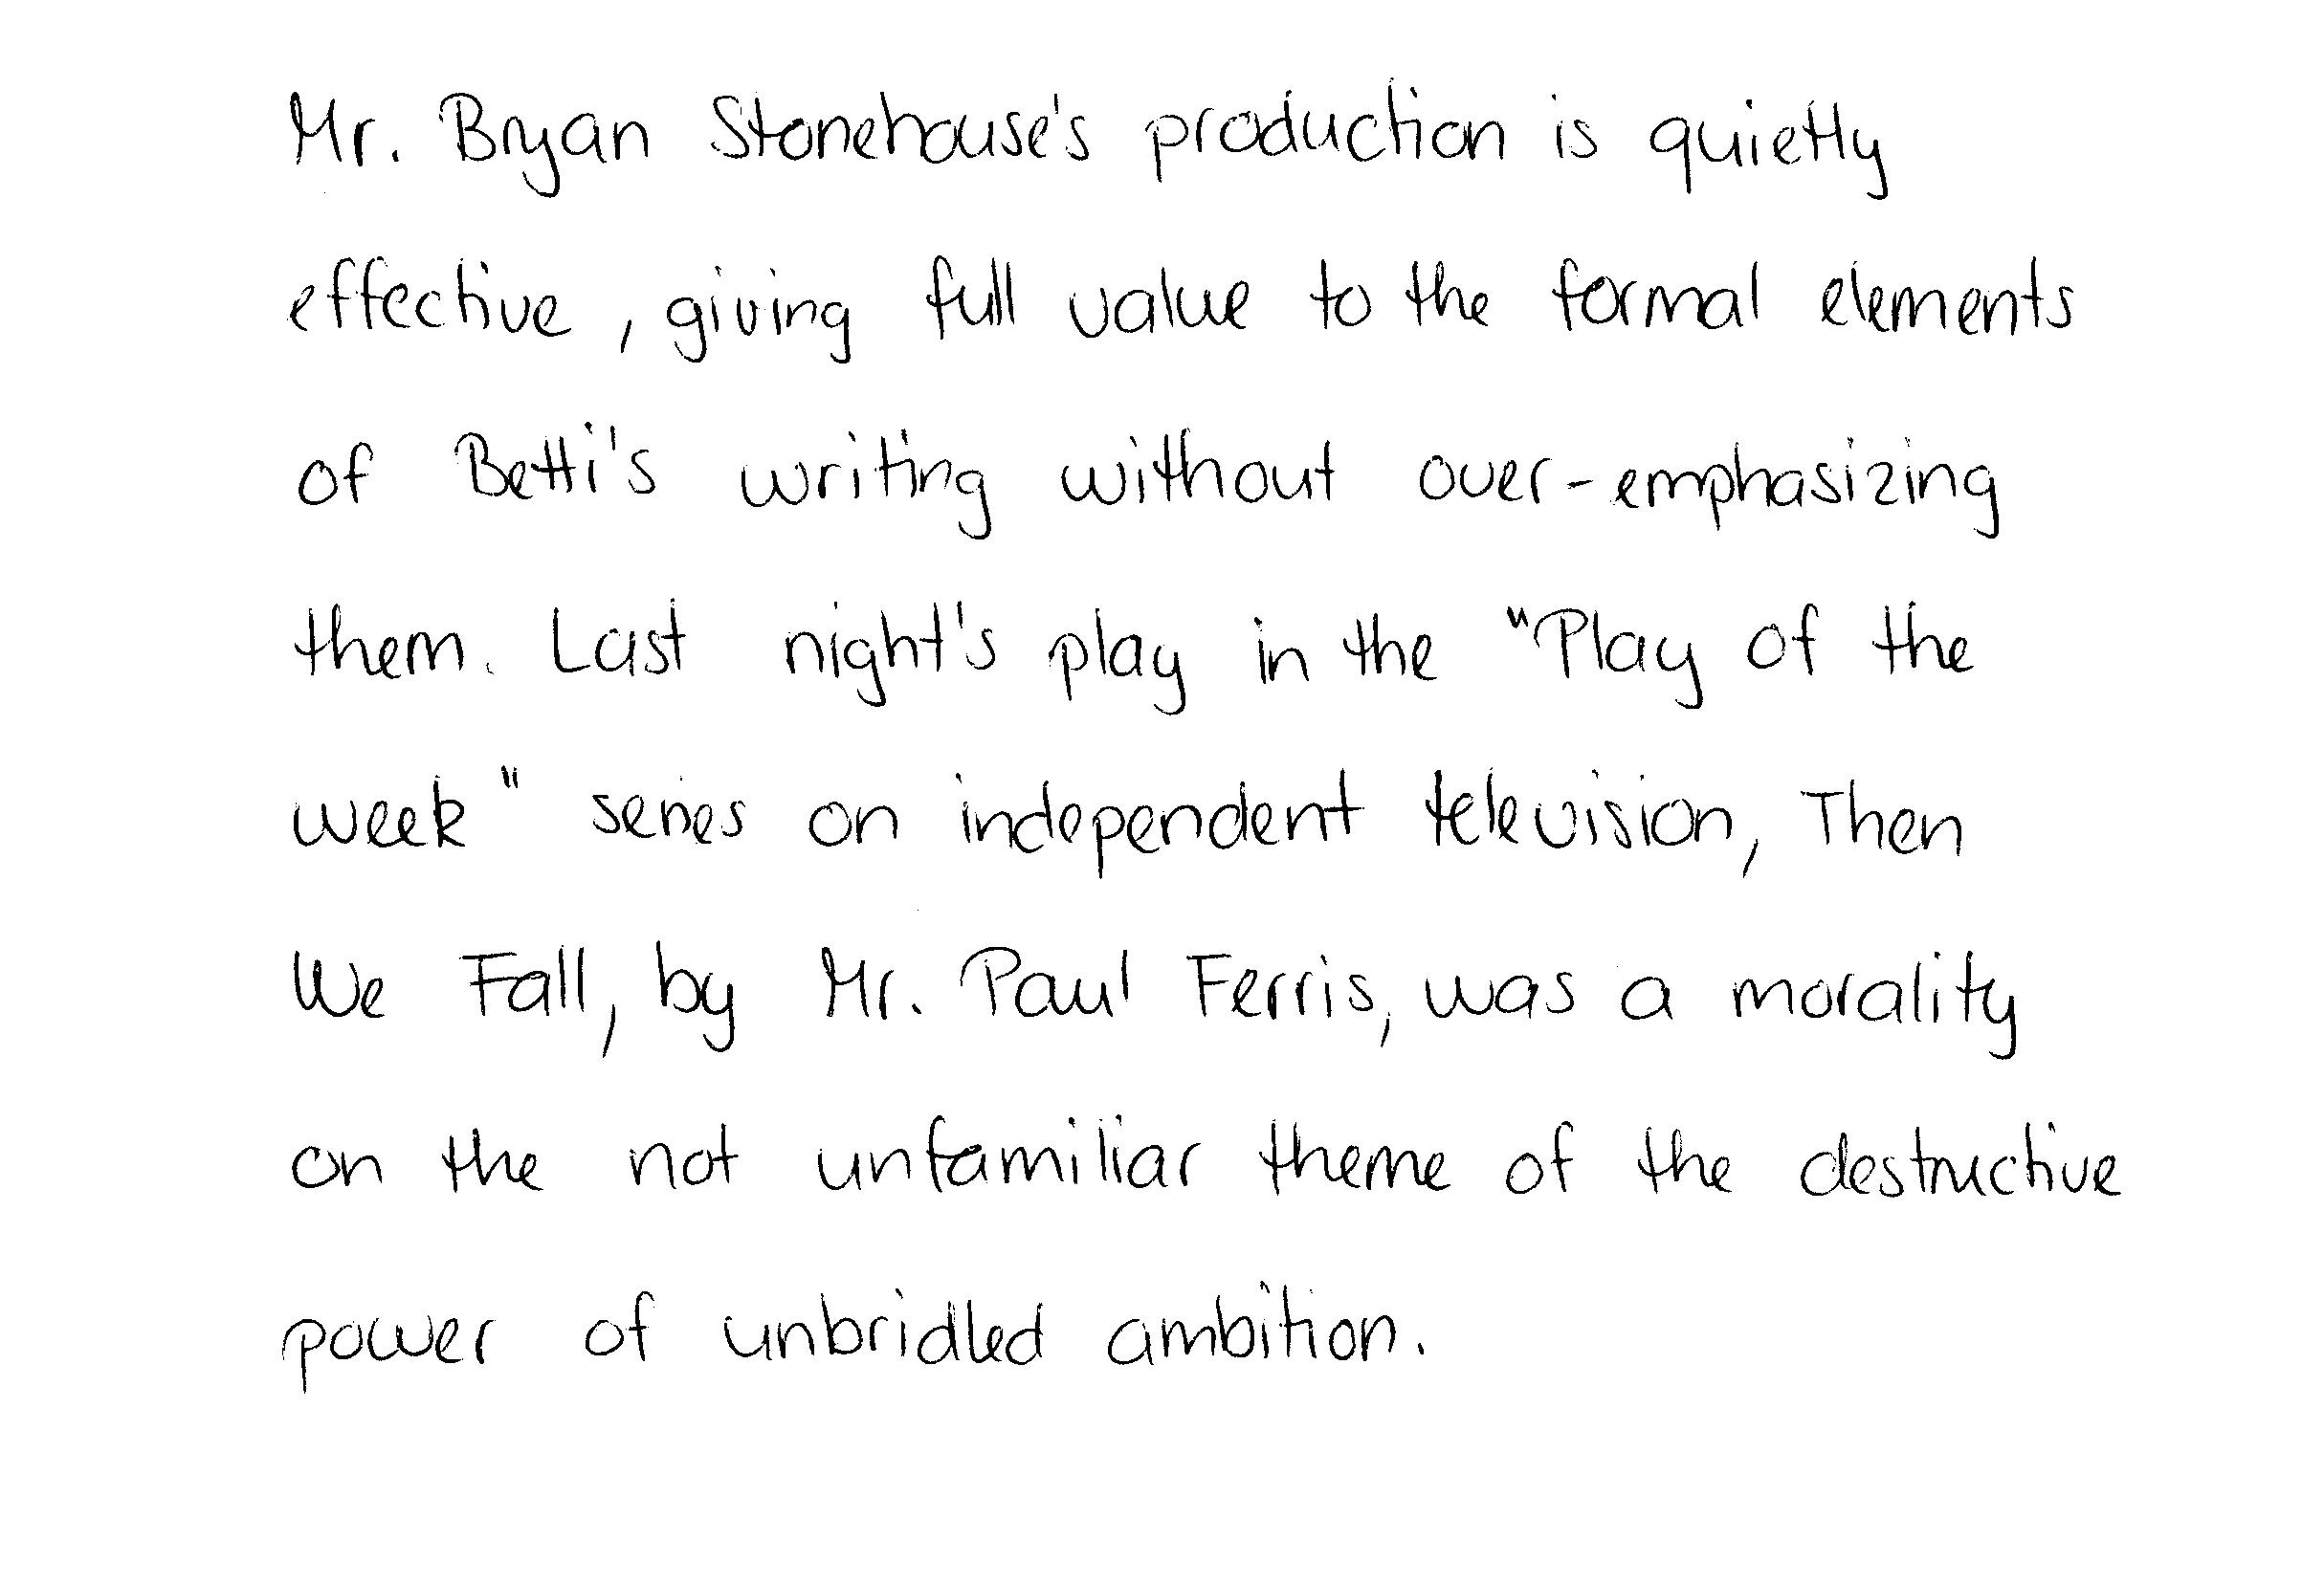 Mr. Bryan Stonehouse's production is quietly
effective, giving full value to the formal elements
of Betti's writing without over-emphasizing
them. Last night's play in the "Play of the
week" series on independent television, Then
We Fall, by Mr. Paul Ferris, was a morality
on the not unfamiliar theme of the destructive
power of unbridled ambition.